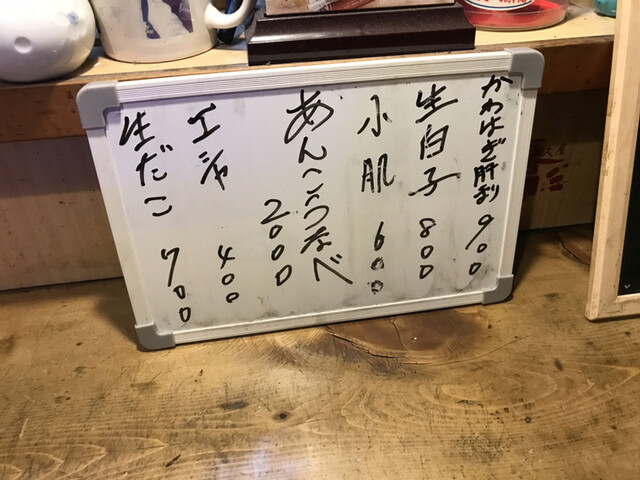 かわはぎ肝刺 900
生白子 800
小肌 600
あんこうなべ 2000
エシャ 400
生だこ 700